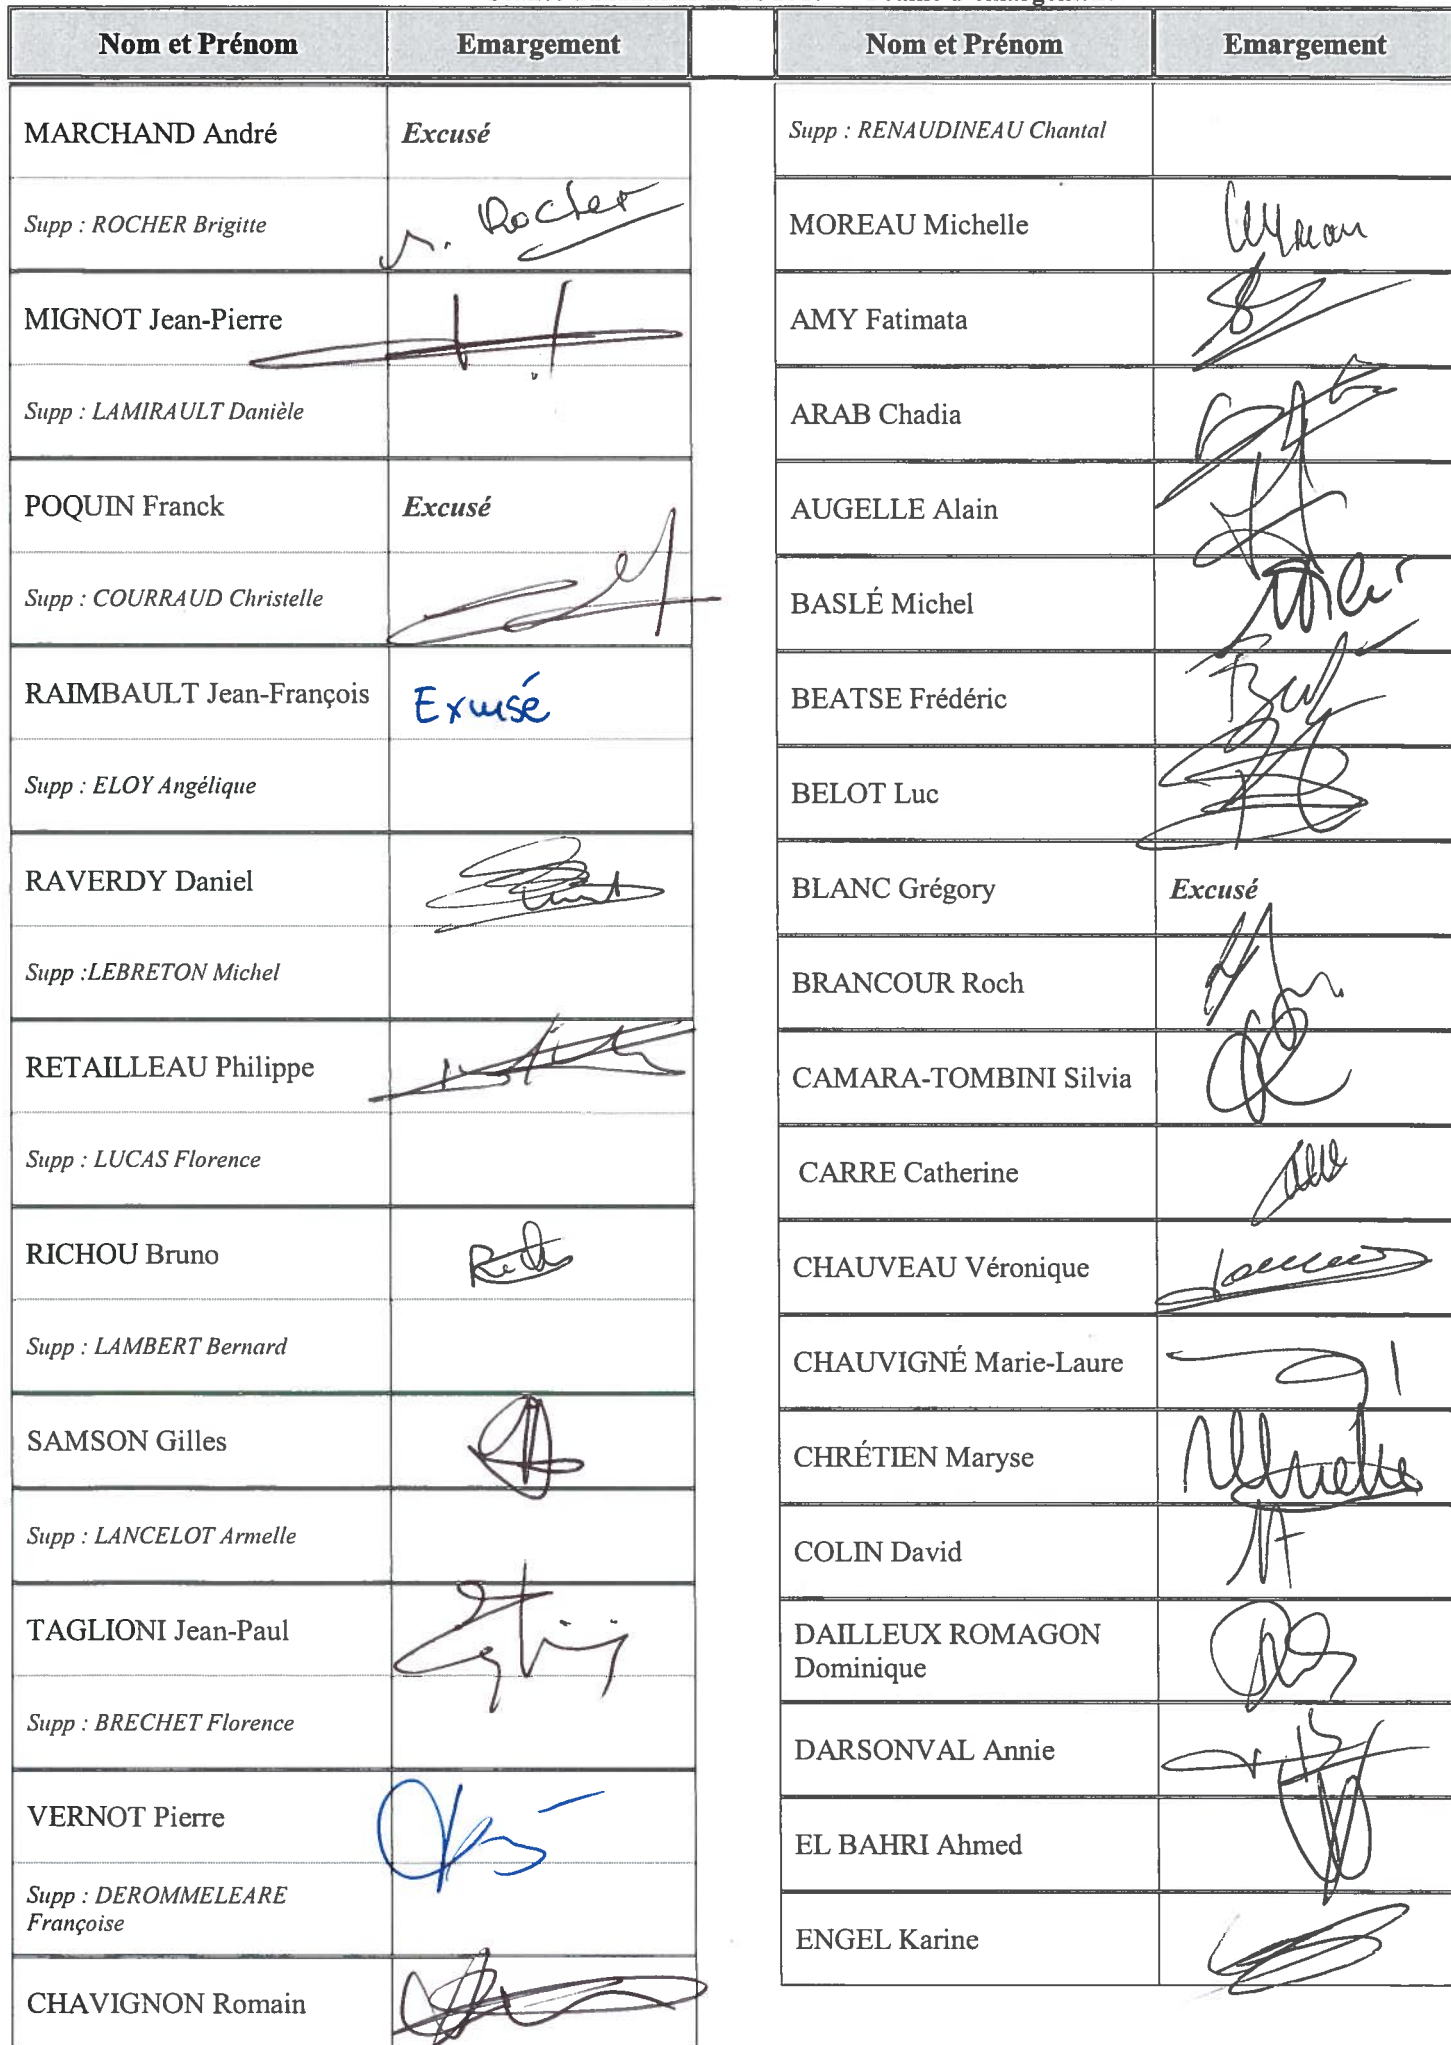 Nom et Prénom Emargement
MARCHAND André Excusé
Supp : ROCHER Brigitte Rocher
MIGNOT Jean-Pierre
Supp : LAMIRAULT Danièle
POQUIN Franck Excusé
Supp : COURRAUD Christelle
RAIMBAULT Jean-François Excusé
Supp : ELOY Angélique
RAVERDY Daniel
Supp :LEBRETON Michel
RETAILLEAU Philippe
Supp : LUCAS Florence
RICHOU Bruno
Supp : LAMBERT Bernard
SAMSON Gilles
Supp : LANCELOT Armelle
TAGLIONI Jean-Paul
Supp : BRECHET Florence
VERNOT Pierre
Supp : DEROMMELEARE
Françoise
CHAVIGNON Romain
Nom et Prénom Emargement
Supp : RENAUDINEAU Chantal
MOREAU Michelle
AMY Fatimata
ARAB Chadia
AUGELLE Alain
BASLÉ Michel
BEATSE Frédéric
BELOT Luc
BLANC Grégory Excusé
BRANCOUR Roch
CAMARA-TOMBINI Silvia
CARRE Catherine
CHAUVEAU Véronique
CHAUVIGNÉ Marie-Laure
CHRÉTIEN Maryse
COLIN David
DAILLEUX ROMAGON
Dominique
DARSONVAL Annie
EL BAHRI Ahmed
ENGEL Karine